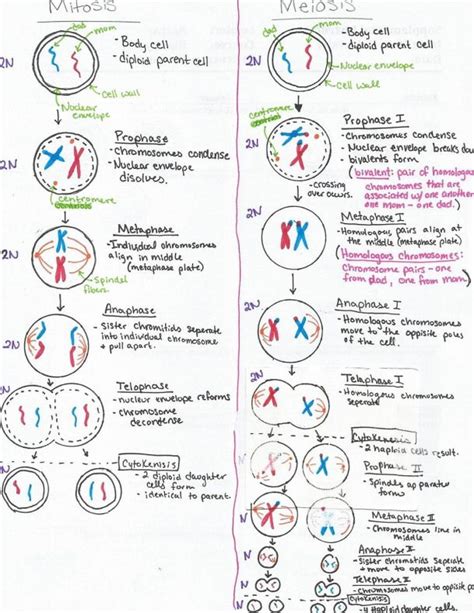 Mitosis
dad
mom
- Body cell
- diploid parent cell
2N
Cell wall
Nuclear
envelope
Prophase
- chromosomes condense
- Nuclear envelope
disolves.
2N
centromere
Metaphase
- Individual chromosomes
align in middle
(metaphase plate)
2N
Spindel
fibers.
Anaphase
- Sister Chromitids seperate
into individual chromosome
+ pull apart.
2N
Telophase
- nuclear envelope reforms
- chromosome
decondense
2N
Cytokenisis
- 2 diploid daughter
cells form
- identical to parent.
N
Meiosis
dad
mom
- Body cell
- diploid parent cell
2N
Nuclear envelope
Cell wall
centromere
Prophase I
- Chromosomes condense
- Nuclear envelope breaks
- bivalents form
(bivalent: pair of homologous
chromosomes that are
associated w/ one another
one mom - one dad.)
2N
- crossing
over occurs.
Metaphase I
- Homologous pairs align at
the middle (metaphase plate)
(Homologous chromosomes:
Chromosome pairs - one
from dad, one from mom)
2N
Anaphase I
- Homologous chromosomes
move to the oppisite poles
of the cell.
2N
Telaphase I
- Homologous chromosomes
seperate
2N
Cytokenesis
- 2 haploid cells result.
Prophase II
- Spindles apparatus
forms
N
Metaphase II
- Chromosomes line in
middle
N
Anaphase II
- Sister chromatids seperate
+ move to opposite sides
N
Telephase II
- Chromosomes move to opposite
N
Cytokinesis
- 4 Haploid daughter cells